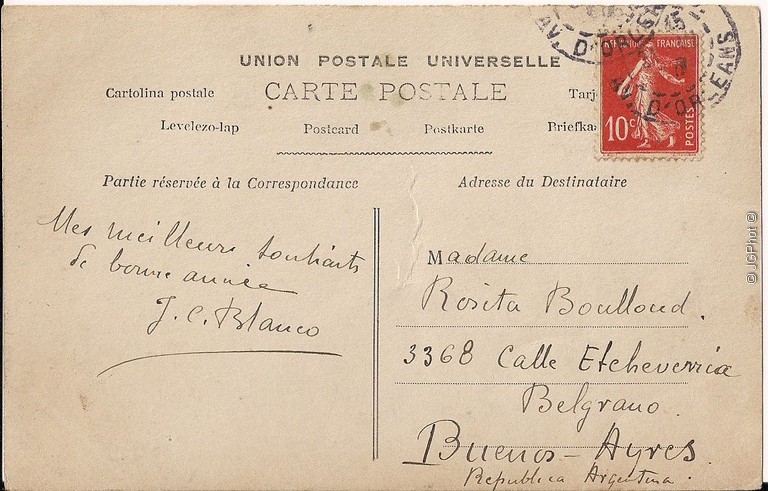 UNION POSTALE UNIVERSELLE
Cartolina postale CARTE POSTALE Tarj
Levelezo-lap Postcard Postkarte Briefka
Partie réservée à la Correspondance
Adresse du Destinataire
RÉPUBLIQUE FRANÇAISE
10c POSTES
AV. D'ORLEANS
Mes meilleurs souhaits
de bonne année
J. C. Blanco
Madame
Rosita Boulloud.
3368 Calle Etcheverria
Belgrano.
Buenos-Ayres
Republica Argentina.
© JGPhot ©